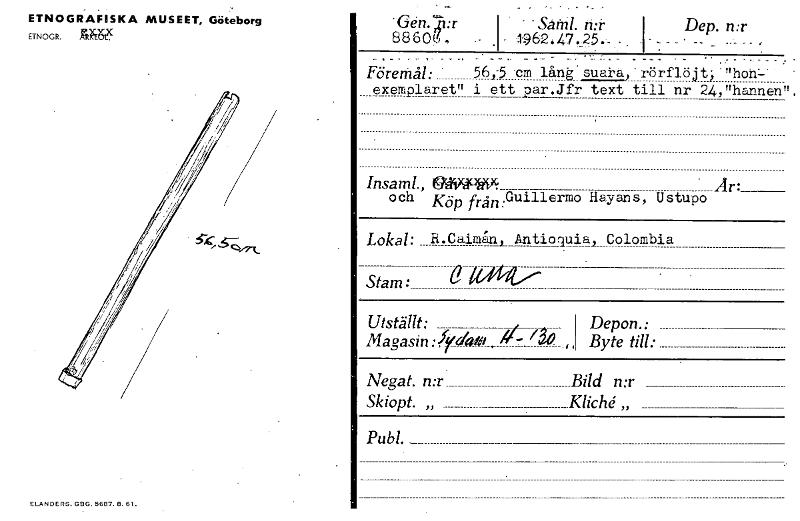 ETNOGRAFISKA MUSEET, Göteborg
ETNOGR.
56,5cm
ELANDERS. GBG. 5687. 8. 61.
Gen. n:r Saml. n:r Dep. n:r
1962.47.25.
Föremål: 56,5 cm lång suara, rörflöjt; "hon-
exemplaret" i ett par.Jfr text till nr 24,"hannen".
Insaml., År:
och Köp från: Guillermo Hayans, Ustupo
Lokal: R.Caimán, Antioquia, Colombia
Stam: Cuna
Utställt: Depon.:
Magasin: Sydam H-130 „ Byte till:
Negat. n:r Bild n:r
Skiopt. „ Kliché „
Publ.